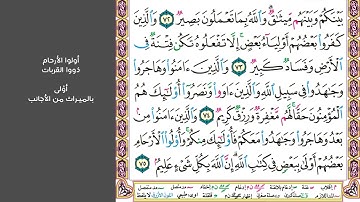 أولوا الأرحام
ذووا القربات
أوْلى
بالميراث من الأجانب
بَيْنَكُمْ وَبَيْنَهُم مِّيثَٰقٌ وَٱللَّهُ بِمَا تَعْمَلُونَ بَصِيرٌ ٧٢ وَٱلَّذِينَ
كَفَرُوا۟ بَعْضُهُمْ أَوْلِيَآءُ بَعْضٍ إِلَّا تَفْعَلُوهُ تَكُن فِتْنَةٌ فِى
ٱلْأَرْضِ وَفَسَادٌ كَبِيرٌ ٧٣ وَٱلَّذِينَ ءَامَنُوا۟ وَهَاجَرُوا۟
وَجَٰهَدُوا۟ فِى سَبِيلِ ٱللَّهِ وَٱلَّذِينَ ءَاوَوا۟ وَّنَصَرُوٓا۟ أُو۟لَٰٓئِكَ هُمُ
ٱلْمُؤْمِنُونَ حَقًّا لَّهُم مَّغْفِرَةٌ وَرِزْقٌ كَرِيمٌ ٧٤ وَٱلَّذِينَ ءَامَنُوا۟ مِنۢ
بَعْدُ وَهَاجَرُوا۟ وَجَٰهَدُوا۟ مَعَكُمْ فَأُو۟لَٰٓئِكَ مِنكُمْ وَأُو۟لُوا۟ ٱلْأَرْحَامِ
بَعْضُهُمْ أَوْلَىٰ بِبَعْضٍ فِى كِتَٰبِ ٱللَّهِ إِنَّ ٱللَّهَ بِكُلِّ شَىْءٍ عَلِيمٌۢ ٧٥